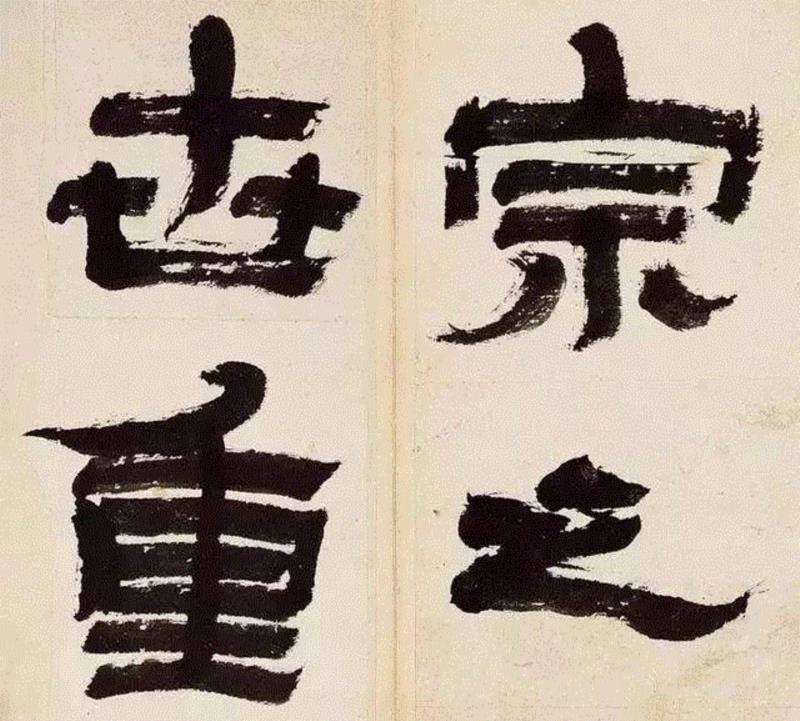 宗之
世重